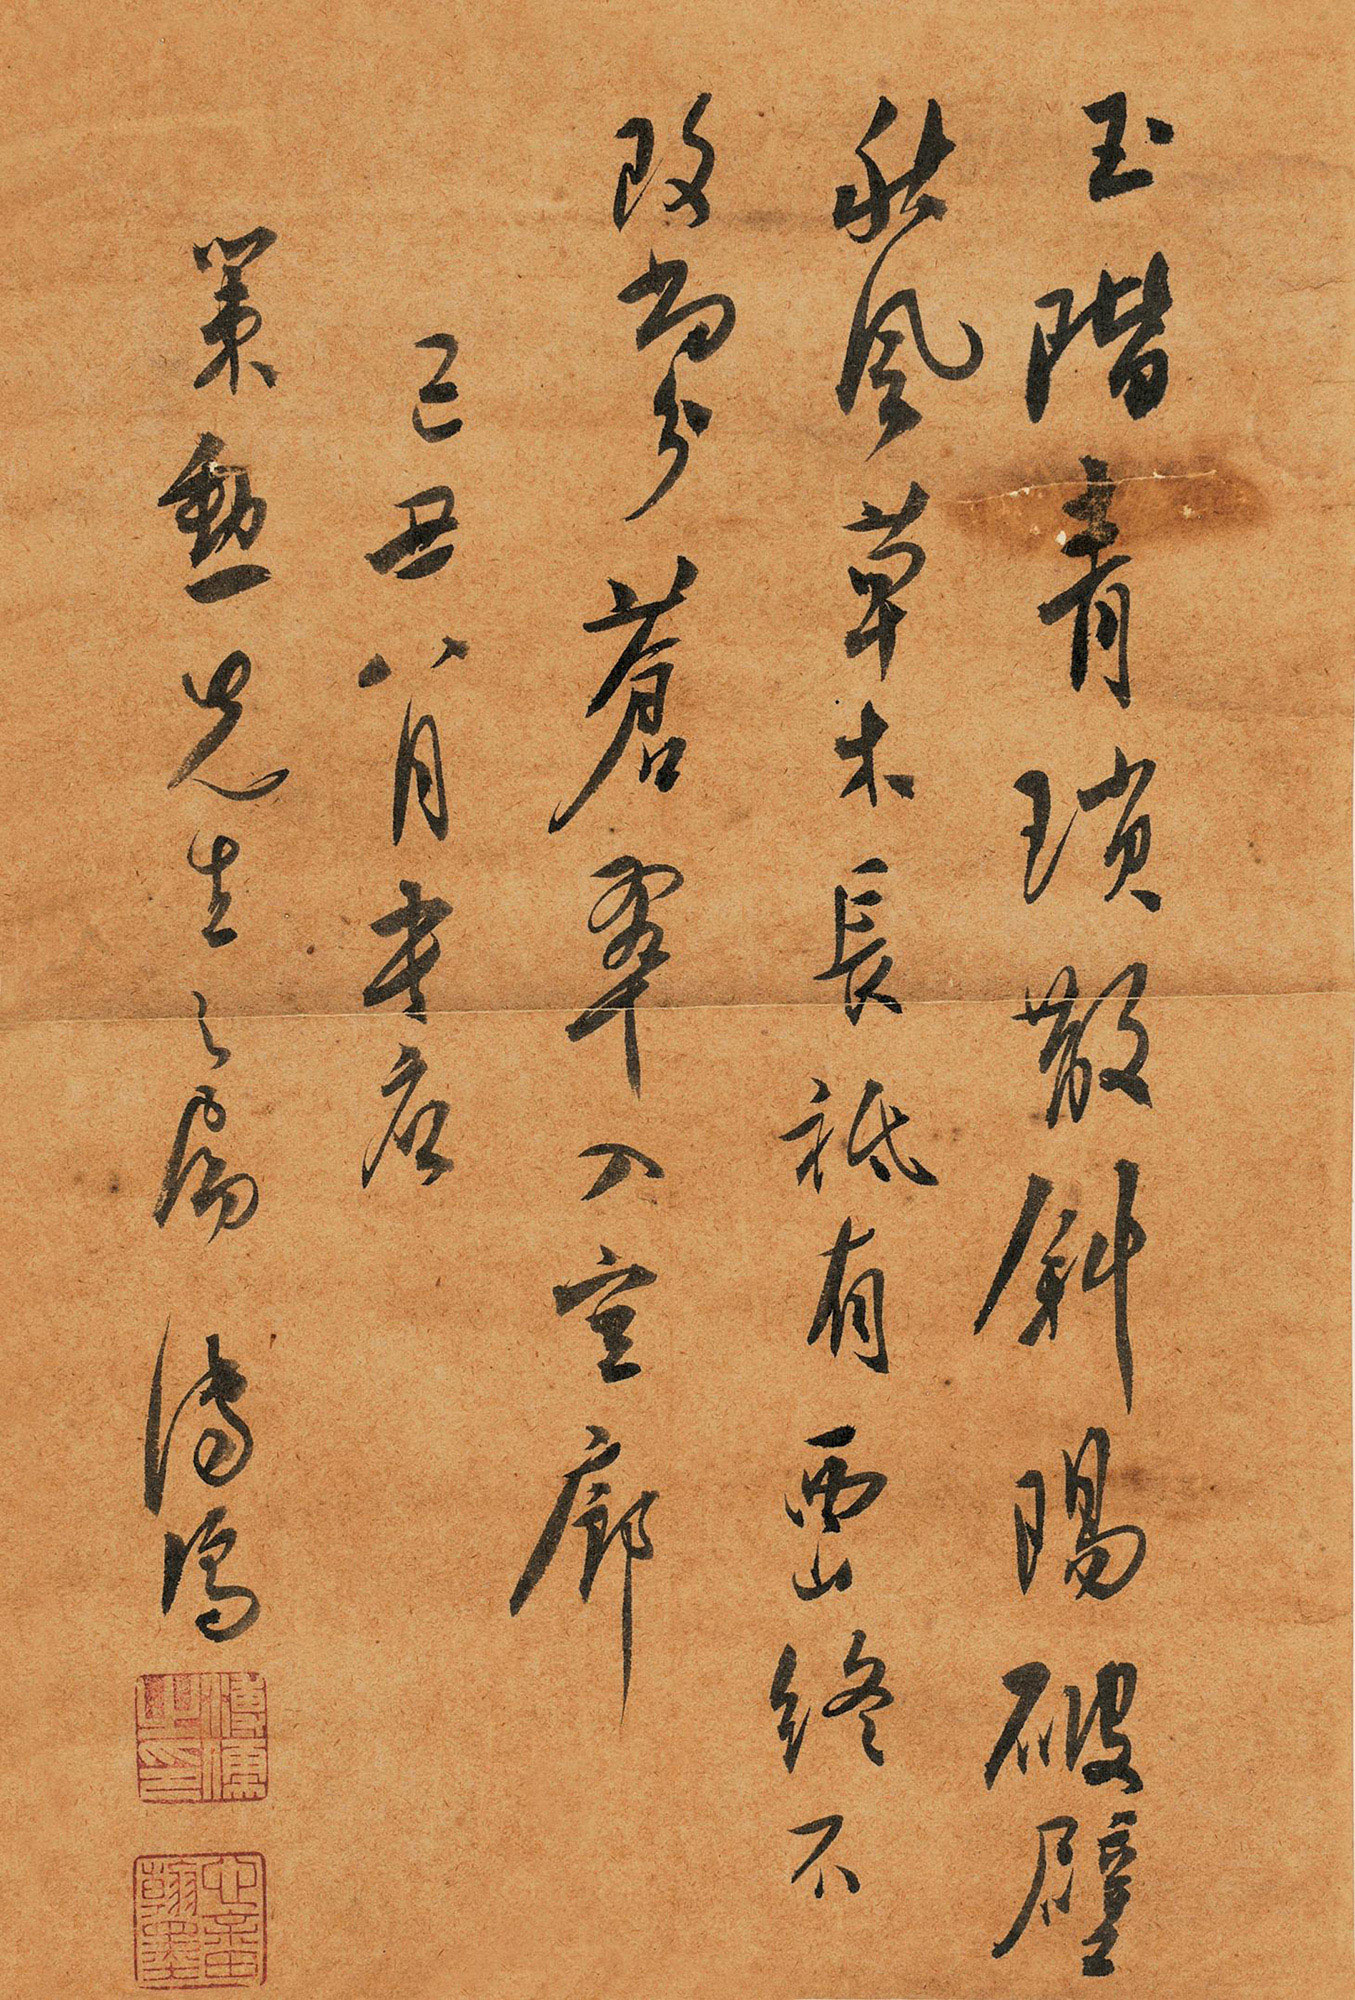 玉階青瑣散斜陽破壁
秋風草木長祗有西山終不
改尚分蒼翠入空廊
己丑八月書應
策勳先生之屬 溥儒
溥儒之印
心畬翰墨